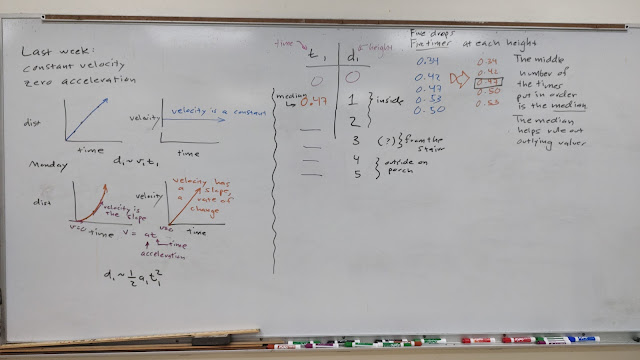 Last week:
constant velocity
zero acceleration
dist
time
velocity
velocity is a constant
time
d₁ ~ v₁t₁
Monday
dist
v=0
time
velocity is
the slope
velocity
velocity has
a slope,
a rate of
change
v=0
time
v = at
time
acceleration
d₁ ~ ½ a₁t₁²
time
t₁
d₁
height
0
0
median
0.47
1
2
inside
3
(?)
from the
stair
4
5
outside on
porch
Five drops
Five timer at each height
0.34
0.42
0.47
0.53
0.50
0.34
0.42
0.47
0.50
0.53
The middle
number of
the times
put in order
is the median
The median
helps rule out
outlying values